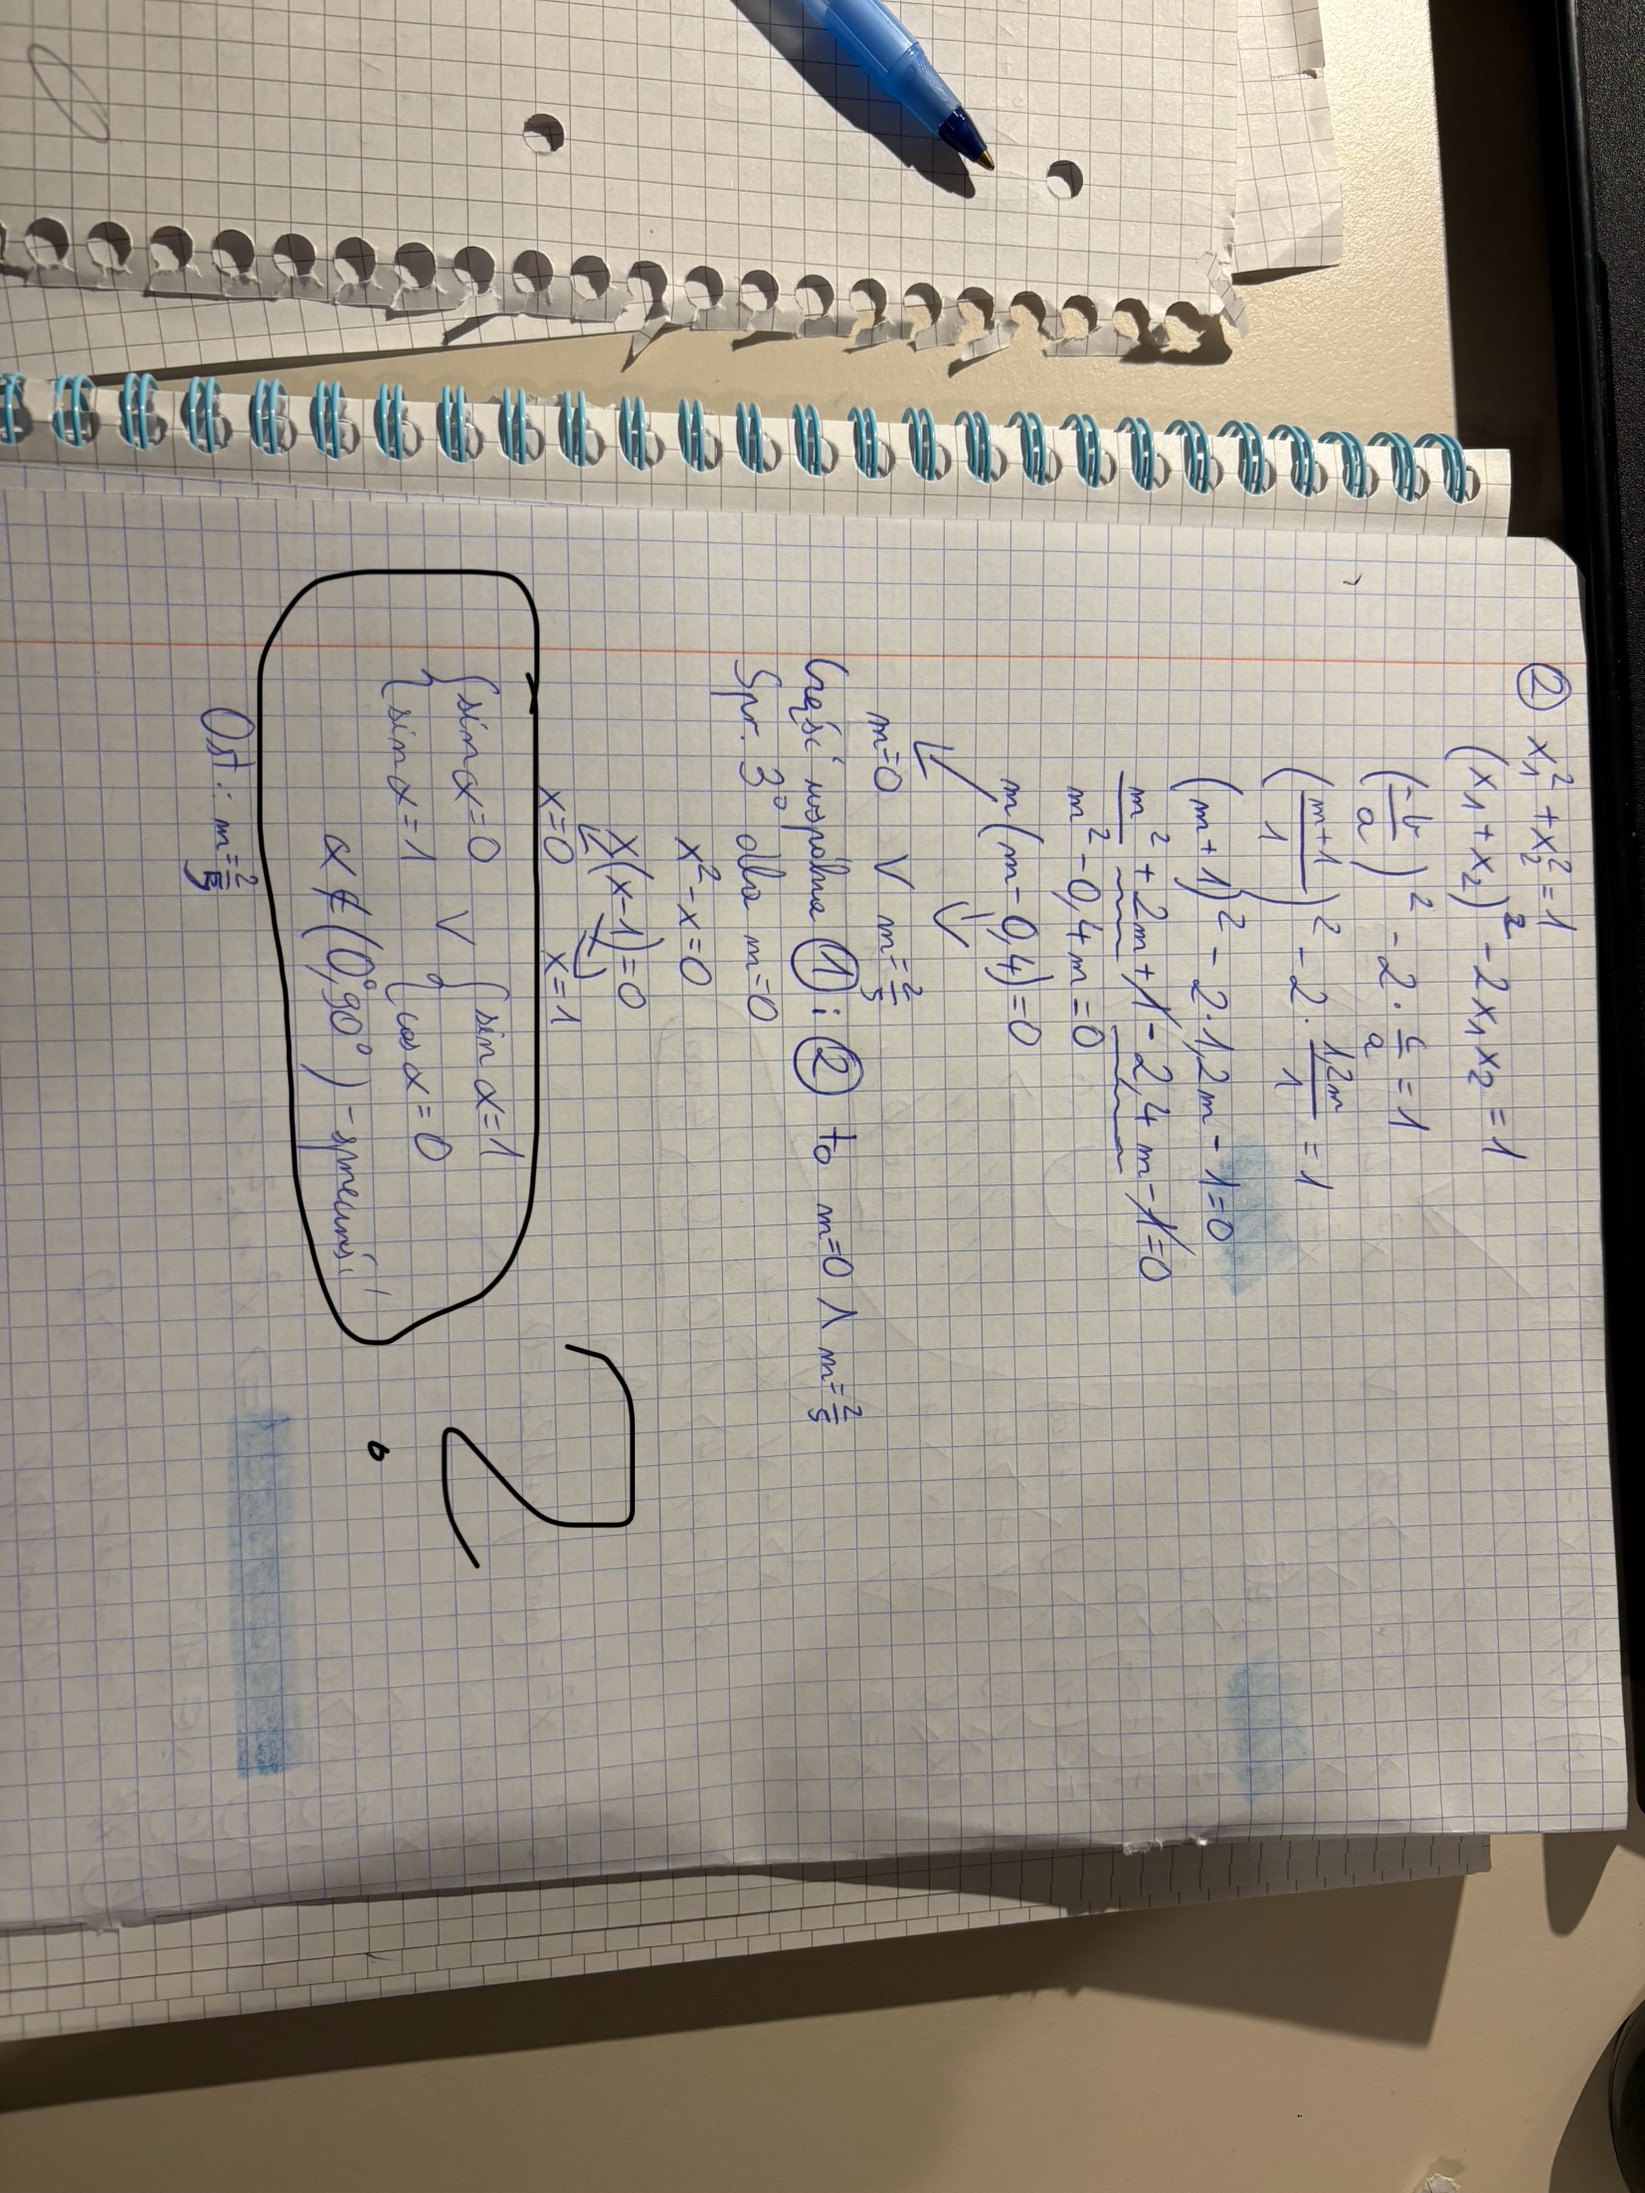 ② x₁² + x₂² = 1
(x₁ + x₂)² - 2x₁x₂ = 1
(-b/a)² - 2 · c/a = 1
(m+1/1)² - 2 · 1,2m/1 = 1
(m+1)² - 2 · 1,2m - 1 = 0
m² + 2m + 1 - 2,4m - 1 = 0
m² - 0,4m = 0
m(m - 0,4) = 0
m=0 ∨ m=2/5
Część wspólna ① i ② to m=0 ∧ m=2/5
Spr. 3° dla m=0
x² - x = 0
x(x-1) = 0
x=0 x=1
{sin α = 0 ∨ {sin α = 1
{sin α = 1 {cos α = 0
α ∉ (0°, 90°) - sprzeczność
Odt: m=2/5
?